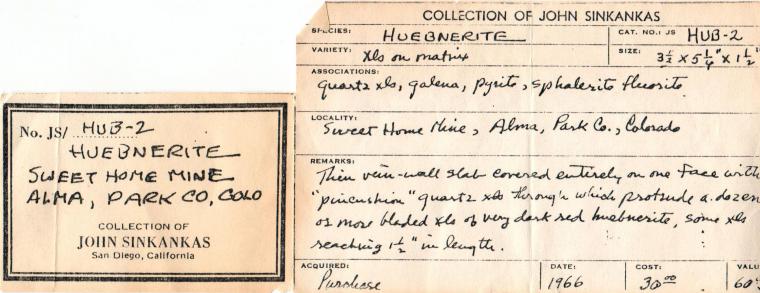 No. JS/ HUB-2
HUEBNERITE
SWEET HOME MINE
ALMA, PARK CO, COLO
COLLECTION OF
JOHN SINKANKAS
San Diego, California
COLLECTION OF JOHN SINKANKAS
SPECIES: HUEBNERITE CAT. NO.: JS HUB-2
VARIETY: xls on matrix SIZE: 3½ x 5¼" x 1½"
ASSOCIATIONS:
quartz xls, galena, pyrite, sphalerite fluorite
LOCALITY:
Sweet Home Mine, Alma, Park Co., Colorado
REMARKS:
Thin vein-wall slab covered entirely on one face with
"pincushion" quartz xls through which protrude a dozen
or more bladed xls of very dark red huebnerite, some xls
reaching 1½" in length.
ACQUIRED: DATE: COST: VALU
Purchase 1966 30.00 60